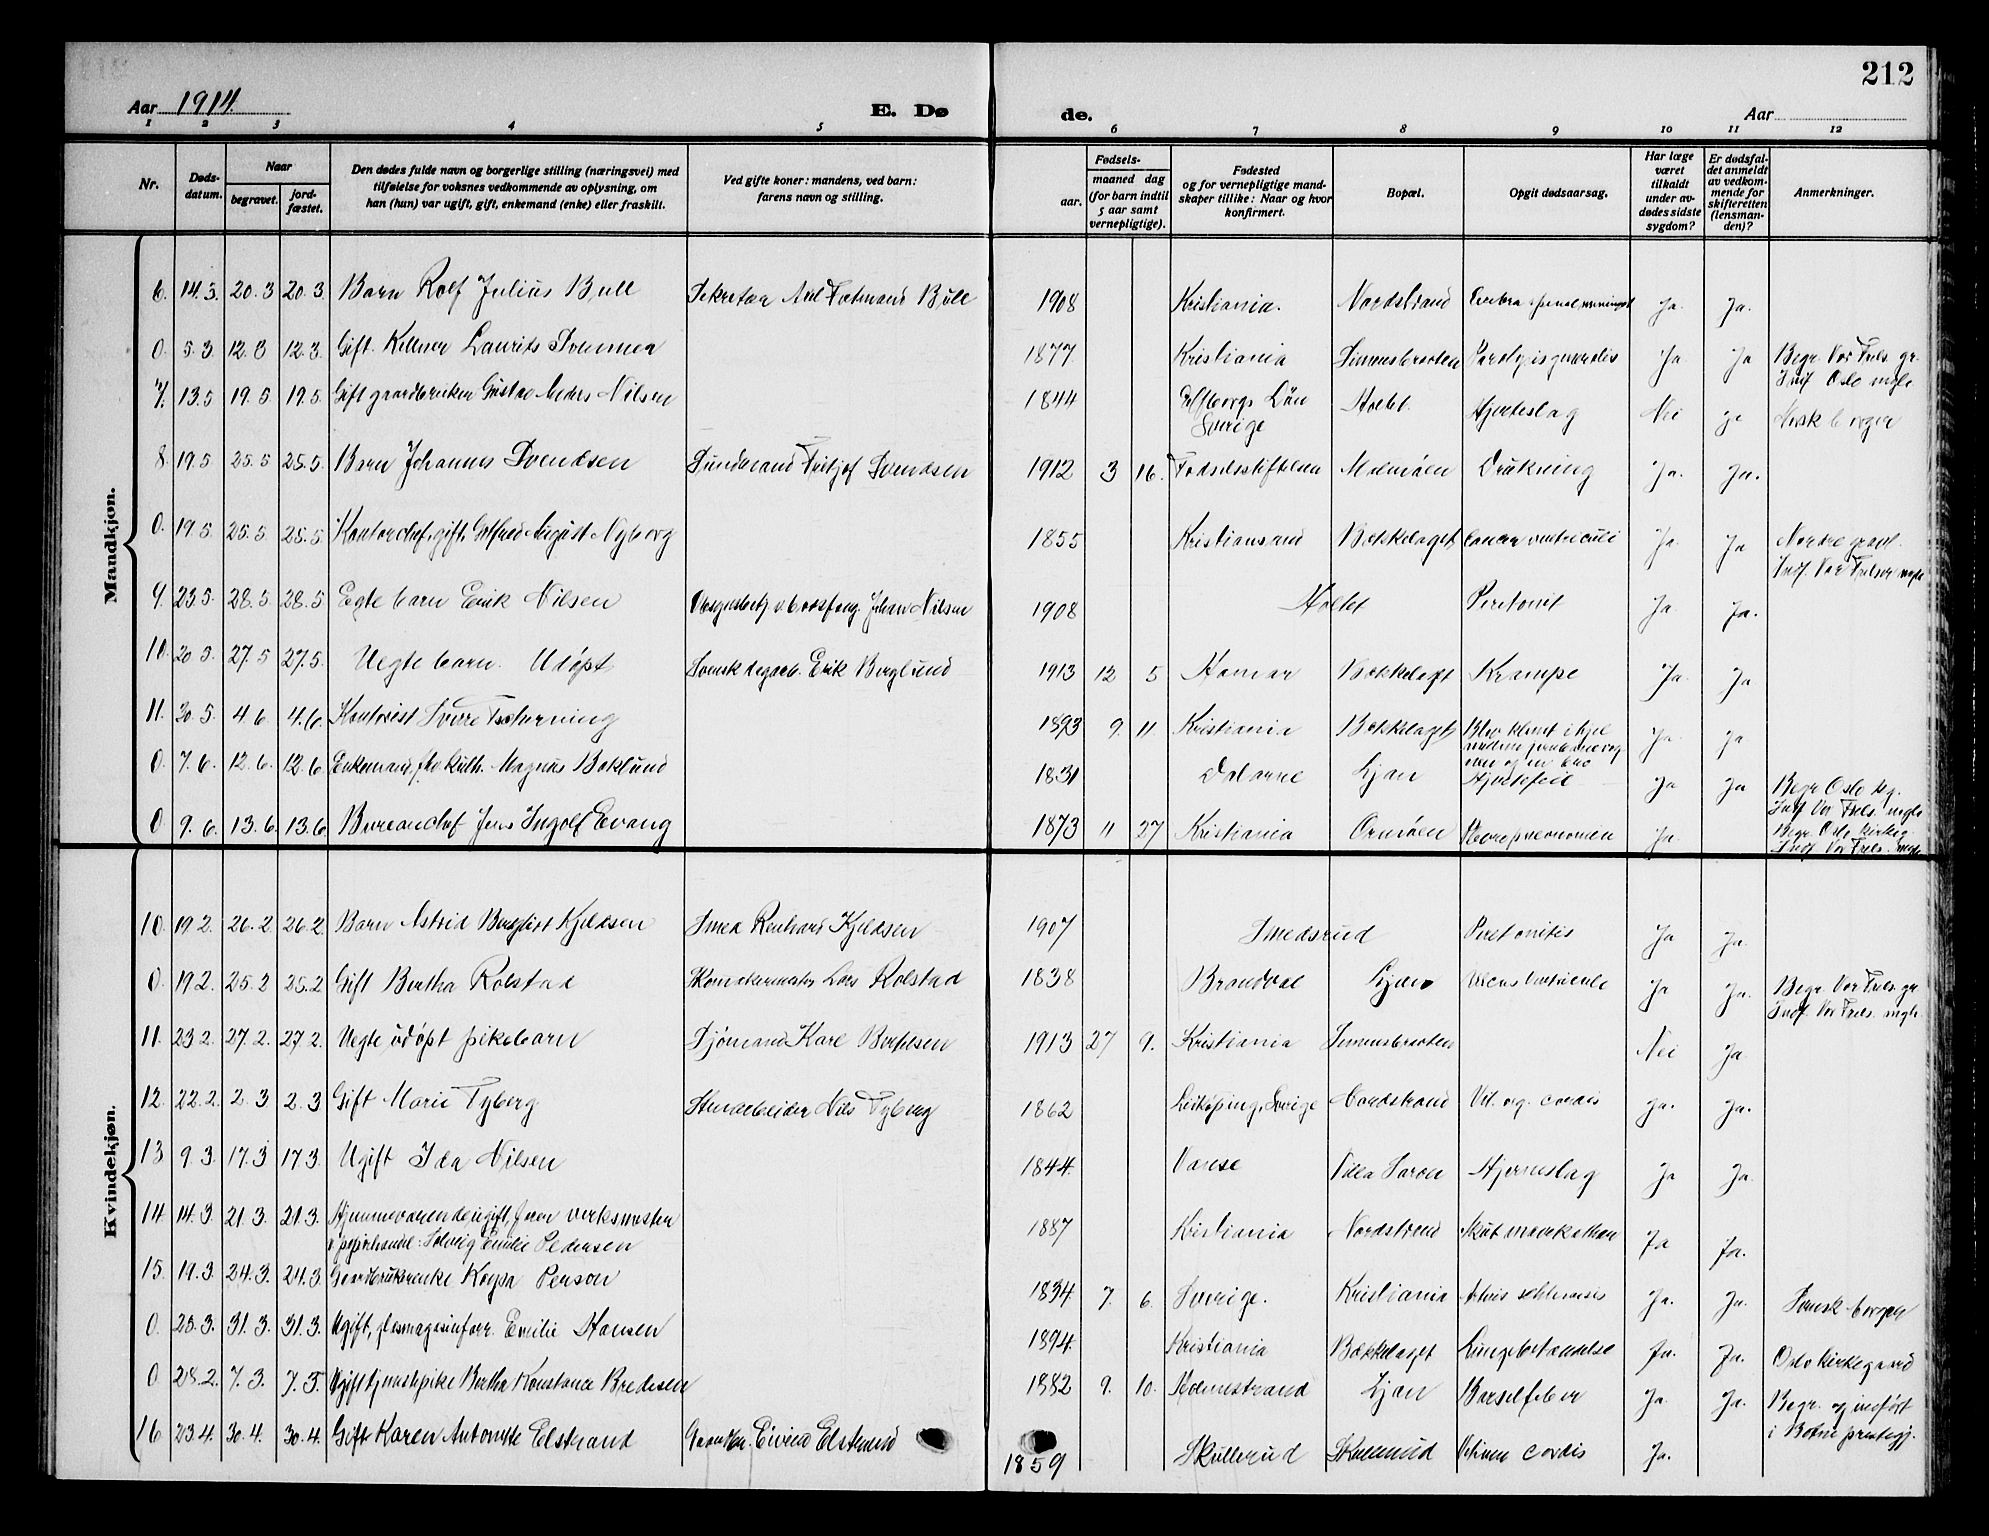 212
Aar 1914. E. Dø de. Aar
1 2 3 4 5 6 7 8 9 10 11 12
Nr.
Døds-
datum.
Naar
begravet.
jord-
fæstet.
Den dødes fulde navn og borgerlige stilling (næringsvei) med
tilføielse for voksnes vedkommende av oplysning, om
han (hun) var ugift, gift, enkemand (enke) eller fraskilt.
Ved gifte koner: mandens, ved barn:
farens navn og stilling.
Fødsels-
aar.
maaned dag
(for barn indtil
5 aar samt
vernepligtige).
Fødested
og for vernepligtige mand-
skaper tillike: Naar og hvor
konfirmert.
Bopæl.
Opgit dødsaarsag.
Har læge
været
tilkaldt
under av-
dødes sidste
sygdom?
Er dødsfal-
det anmeldt
av vedkom-
mende for
skifteretten
(lensman-
den)?
Anmerkninger.
Mandkjøn.
6. 14.3. 20.3 20.3. Barn Rolf Julius Bull Sekretær Bull 1908 Kristiania. Nordstrand Ja. Ja.
0. 5.3. 12.3 12.3. Gift. Kellner Laurits 1877 Kristiania Simensbraaten Ja Ja Begr. Vor Frels. gr.
Indf. Oslo mgle
7. 13.5 19.5. 19.5. Gift gaardbruker Gustav Anders Nilsen 1844 Elfborgs Län Holtet. Hjerteslag Nei ja Norsk borger
Sverige
8. 19.5 25.5 25.5. Barn Johannes Svendsen Fritjof Svendsen 1912 3 16. Fødselsstiftelsen Malmøen Drukning Ja. Ja.
0. 19.5. 25.5. 25.5. Kontorchef, gift, August Nyborg 1855 Kristiansand Bækkelaget Cancer ventriculi Ja. Ja Nordre gravl.
Indf. Vor Frelser mgle
9. 23.5. 28.5. 28.5 Egte barn Erik Nilsen Johan Nilsen 1908 Holtet Peritonit Ja Ja.
10. 20.5. 27.5 27.5. Uegte barn. Udøpt Svensk Erik Berglund 1913 12 5 Hamar Bækkelaget Krampe Ja. Ja
11. 30.5. 4.6. 4.6. Kontorist Sverre Tscherning 1893 9. 11 Kristiania Bækkelaget Blev klemt ihjel
mellem
Ja Ja
0. 7.6. 12.6. 12.6 Enkemand, Magnus Boklund 1831 Dalarne Ljan Hjertefeil Ja Ja Begr. Oslo kg.
Indf. Vor Frels. mgle
0 9.6. 13.6. 13.6. Bureauchef Jens Ingolf Evang 1873 11 27 Kristiania Ormøen Ja. Begr. Oslo kirkeg
Indf. Vor Frels. mgle
Kvindekjøn.
10. 19.2. 26.2 26.2. Barn Astrid Bergliot Kjeldsen Smed Reinhard Kjeldsen 1907 Smedsrud Peritonitis Ja Ja.
0. 19.2. 25.2 25.2 Gift Bertha Rolstad Skomakermester Lars Rolstad 1838 Brandval Ljan Ulcus ventriculi Ja Ja. Begr. Vor Frels. gr
Indf. Vor Frels. mgle.
11. 23.2. 27.2. 27.2. Uegte udøpt pikebarn Sjømand Karl 1913 27 9. Kristiania Simensbraaten Nei Ja
12. 22.2. 2.3 2.3 Gift Marie Tyberg Stenarbeider Nils Tyberg 1862 Sverige Nordstrand Vit. org. cordis Ja. Ja.
13 9.3. 17.3 17.3. Ugift Ida Nilsen 1844. Vanse Villa Saron Hjerneslag Ja Ja.
14 14.3. 21.3. 21.3. Hjemmeværende, ugift, faren verksmester
v. papirhandel. Solveig Emilie Pedersen 1887 Kristiania Nordstrand Ja Ja.
15. 19.3. 24.3. 24.3. Gaardbrukerenke Kaysa Person 1834 7. 6. Sverige. Kristiania Ja. Ja. Svensk borger
0. 25.3. 31.3. 31.3. Ugift, Emilie Hansen 1894. Kristiania Bækkelaget Lungebetændelse Ja. Ja. Oslo kirkegaard
0 28.2. 7.3. 7.3. Ugift tjenestepike Bertha Konstance Bredesen 1882 9. 10. Holmestrand Ljan Barselfeber Ja. Ja. Begr. og indført
i Botne prestegj.
16 23.4. 30.4. 30.4. Gift Karen Antonette Elstrand Eivind Elstrand 1859 Skullerud Skullerud Vitium cordis Ja.